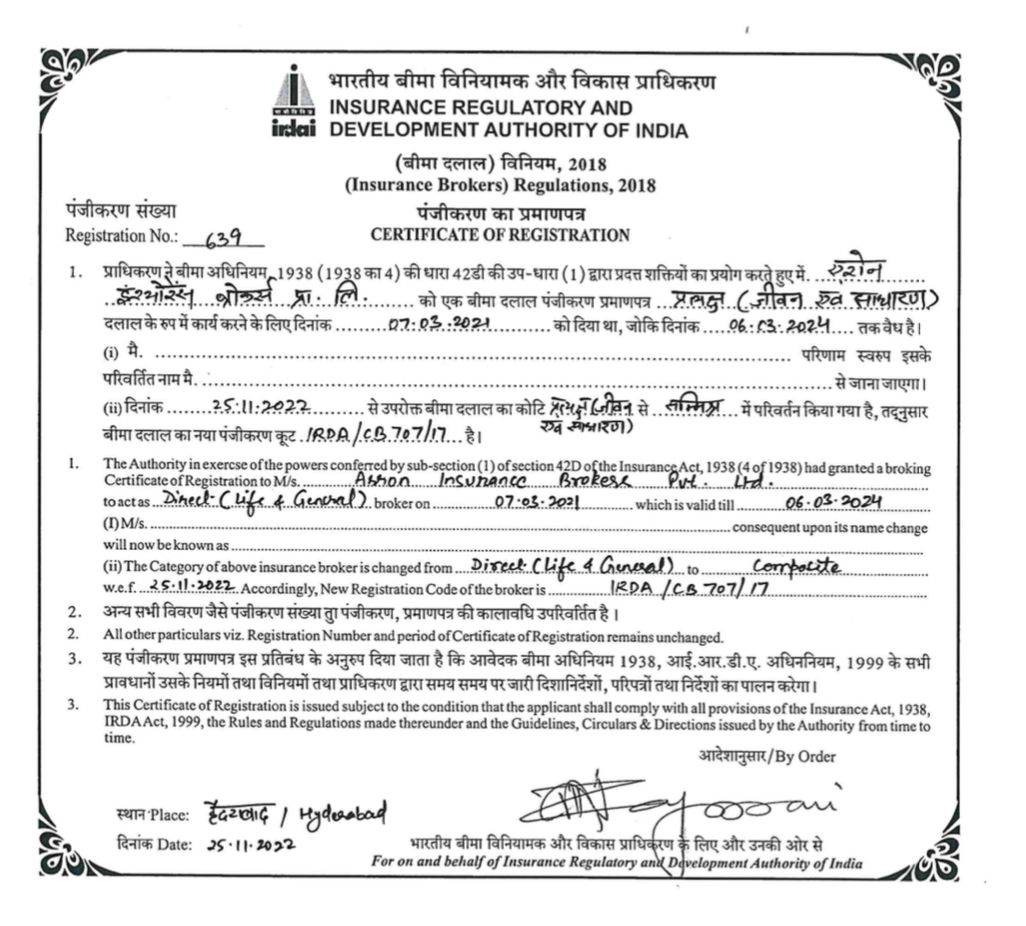 भारतीय बीमा विनियामक और विकास प्राधिकरण
INSURANCE REGULATORY AND
DEVELOPMENT AUTHORITY OF INDIA
irdai
(बीमा दलाल) विनियम, 2018
(Insurance Brokers) Regulations, 2018
पंजीकरण संख्या
Registration No.: 639
पंजीकरण का प्रमाणपत्र
CERTIFICATE OF REGISTRATION
1. प्राधिकरण ने बीमा अधिनियम, 1938 (1938 का 4) की धारा 42डी की उप-धारा (1) द्वारा प्रदत्त शक्तियों का प्रयोग करते हुए में. एशोन
इंश्योरेंस ब्रोकर्स प्रा. लि. को एक बीमा दलाल पंजीकरण प्रमाणपत्र प्रत्यक्ष (जीवन एवं साधारण)
दलाल के रुप में कार्य करने के लिए दिनांक 07.03.2021 को दिया था, जोकि दिनांक 06.03.2024 तक वैध है।
(i) मै. परिणाम स्वरुप इसके
परिवर्तित नाम मै. से जाना जाएगा।
(ii) दिनांक 25.11.2022 से उपरोक्त बीमा दलाल का कोटि प्रत्यक्ष (जीवन एवं साधारण) से सम्मिश्र में परिवर्तन किया गया है, तद्नुसार
बीमा दलाल का नया पंजीकरण कूट IRDA/CB 707/17 है।
1. The Authority in exercse of the powers conferred by sub-section (1) of section 42D of the Insurance Act, 1938 (4 of 1938) had granted a broking
Certificate of Registration to M/s. Ashon Insurance Brokers Pvt. Ltd.
to act as Direct (Life & General) broker on 07.03.2021 which is valid till 06.03.2024
(I) M/s. consequent upon its name change
will now be known as
(ii) The Category of above insurance broker is changed from Direct (Life & General) to Composite
w.e.f. 25.11.2022 Accordingly, New Registration Code of the broker is IRDA/CB 707/17
2. अन्य सभी विवरण जैसे पंजीकरण संख्या तुा पंजीकरण, प्रमाणपत्र की कालावधि उपरिवर्तित है ।
2. All other particulars viz. Registration Number and period of Certificate of Registration remains unchanged.
3. यह पंजीकरण प्रमाणपत्र इस प्रतिबंध के अनुरुप दिया जाता है कि आवेदक बीमा अधिनियम 1938, आई.आर.डी.ए. अधिननियम, 1999 के सभी
प्रावधानों उसके नियमों तथा विनियमों तथा प्राधिकरण द्वारा समय समय पर जारी दिशानिर्देशों, परिपत्रों तथा निर्देशों का पालन करेगा।
3. This Certificate of Registration is issued subject to the condition that the applicant shall comply with all provisions of the Insurance Act, 1938,
IRDA Act, 1999, the Rules and Regulations made thereunder and the Guidelines, Circulars & Directions issued by the Authority from time to
time.
आदेशानुसार/By Order
स्थान Place: हैदराबाद / Hyderabad
दिनांक Date: 25.11.2022
भारतीय बीमा विनियामक और विकास प्राधिकरण के लिए और उनकी ओर से
For on and behalf of Insurance Regulatory and Development Authority of India